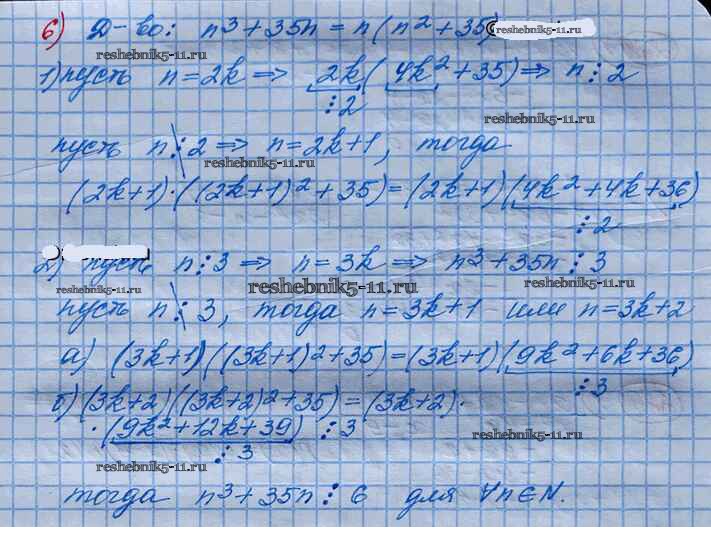 6) Д-во: n³ + 35n = n(n² + 35)
reshebnik5-11.ru
1) пусть n = 2k ⇒ 2k(4k² + 35) ⇒ n ⋮ 2
⋮ 2
reshebnik5-11.ru
пусть n ⋮̸ 2 ⇒ n = 2k+1, тогда
reshebnik5-11.ru
(2k+1)·((2k+1)² + 35) = (2k+1)(4k² + 4k + 36)
⋮ 2
2) пусть n ⋮ 3 ⇒ n = 3k ⇒ n³ + 35n ⋮ 3
reshebnik5-11.ru reshebnik5-11.ru reshebnik5-11.ru
пусть n ⋮̸ 3, тогда n = 3k+1 или n = 3k+2
а) (3k+1)((3k+1)² + 35) = (3k+1)(9k² + 6k + 36)
⋮ 3
б) (3k+2)((3k+2)² + 35) = (3k+2)·
·(9k² + 12k + 39) ⋮ 3
reshebnik5-11.ru
⋮ 3
reshebnik5-11.ru
тогда n³ + 35n ⋮ 6 для ∀n∈N.